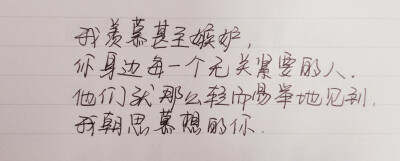 我羡慕甚至嫉妒,
你身边每一个无关紧要的人.
他们就那么轻而易举地见到.
我朝思慕想的你.